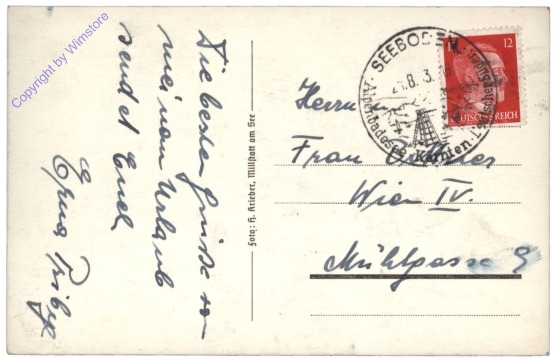 Copyright by Wimstore
Die besten Grüsse von
meinem Urlaub
sendet Euch
Erna
Foto: H. Krieber, Millstatt am See
SEEBODEN
Kärnten
12
DEUTSCHES REICH
Herrn
Frau
Wien IV.
Mühlgasse 9